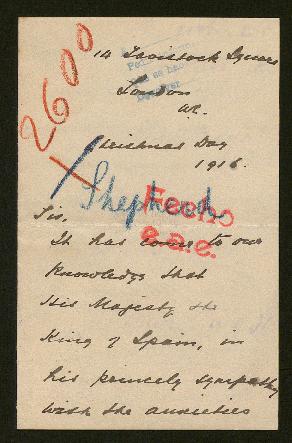 2600
14 Tavistock Square
London
W.C.
Christmas Day
1916.
Shepherd
Fecho
e.a.e.
Sir,
It has come to our
knowledge that
His Majesty the
King of Spain, in
his princely sympathy
with the anxieties